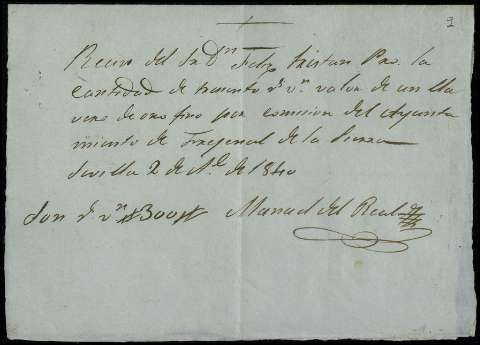 2
Recivi del Sr Dn Felix Tristan Pro. la
cantidad de trescientos rs vn valor de un lla
vero de oro fino por comision del Ayunta
miento de Fregenal de la Sierra
Sevilla 2 de de 1840
Son rs vn #300# Manuel del Real